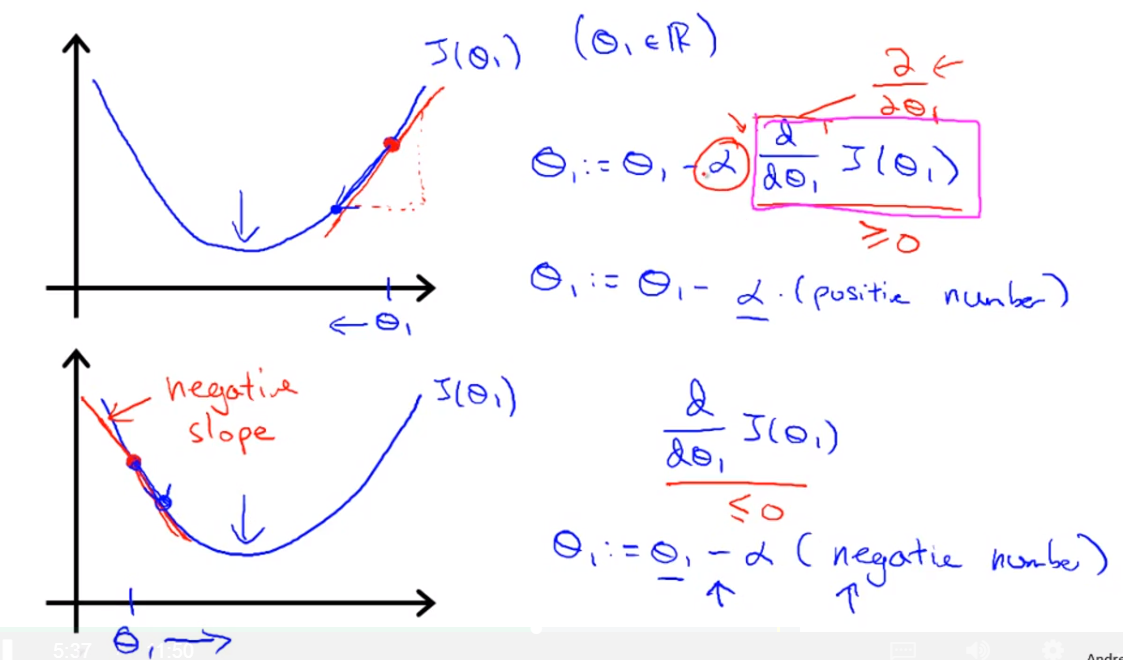 J(θ₁) (θ₁ ∈ ℝ)
∂/∂θ₁ ←
θ₁ := θ₁ - α d/dθ₁ J(θ₁)
≥ 0
θ₁ := θ₁ - α · (positive number)
← θ₁
negative
slope
J(θ₁)
d/dθ₁ J(θ₁)
≤ 0
θ₁ := θ₁ - α (negative number)
θ₁ →
5:37 11:50
Andre